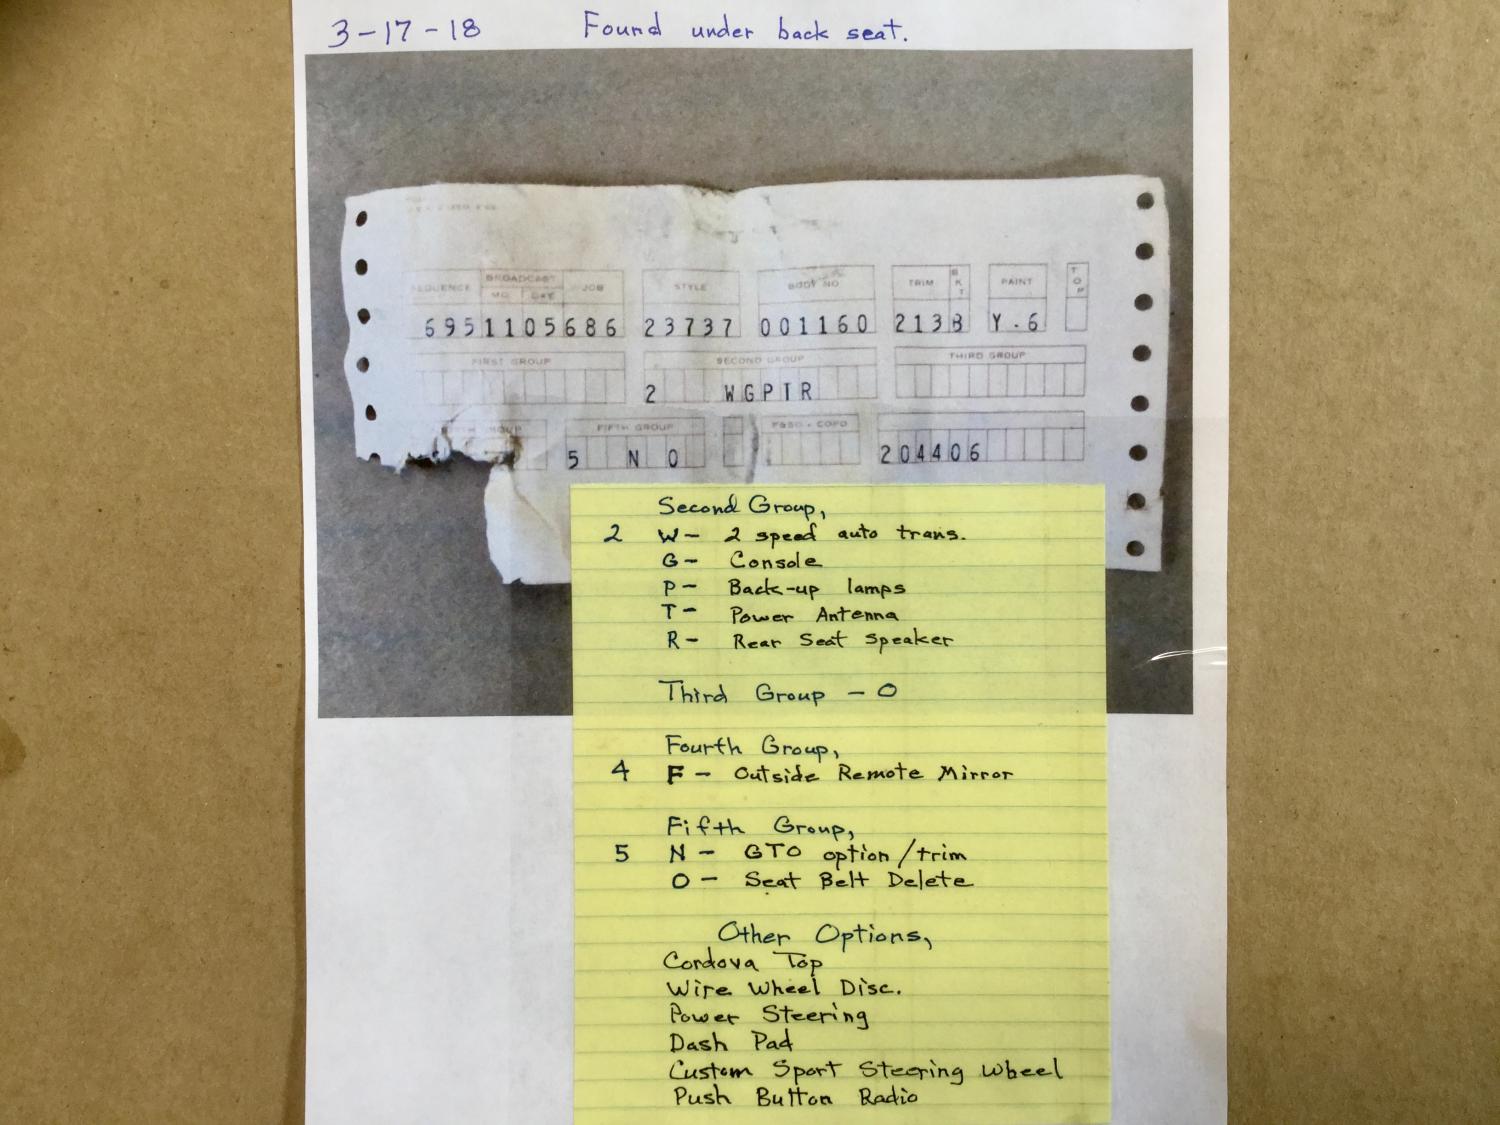 3-17-18 Found under back seat.
BROADCAST
SEQUENCE MO. DAY JOB STYLE BODY NO TRIM BKT PAINT TOP
695 11 05 686 23737 001160 213 B Y-6
FIRST GROUP SECOND GROUP THIRD GROUP
2 WGPTR
GROUP FIFTH GROUP F&SO - COPO
5 N O 204406
Second Group,
2 W- 2 speed auto trans.
G- Console
P- Back-up lamps
T- Power Antenna
R- Rear Seat Speaker
Third Group - 0
Fourth Group,
4 F- Outside Remote Mirror
Fifth Group,
5 N- GTO option/trim
O- Seat Belt Delete
Other Options,
Cordova Top
Wire Wheel Disc.
Power Steering
Dash Pad
Custom Sport Steering Wheel
Push Button Radio